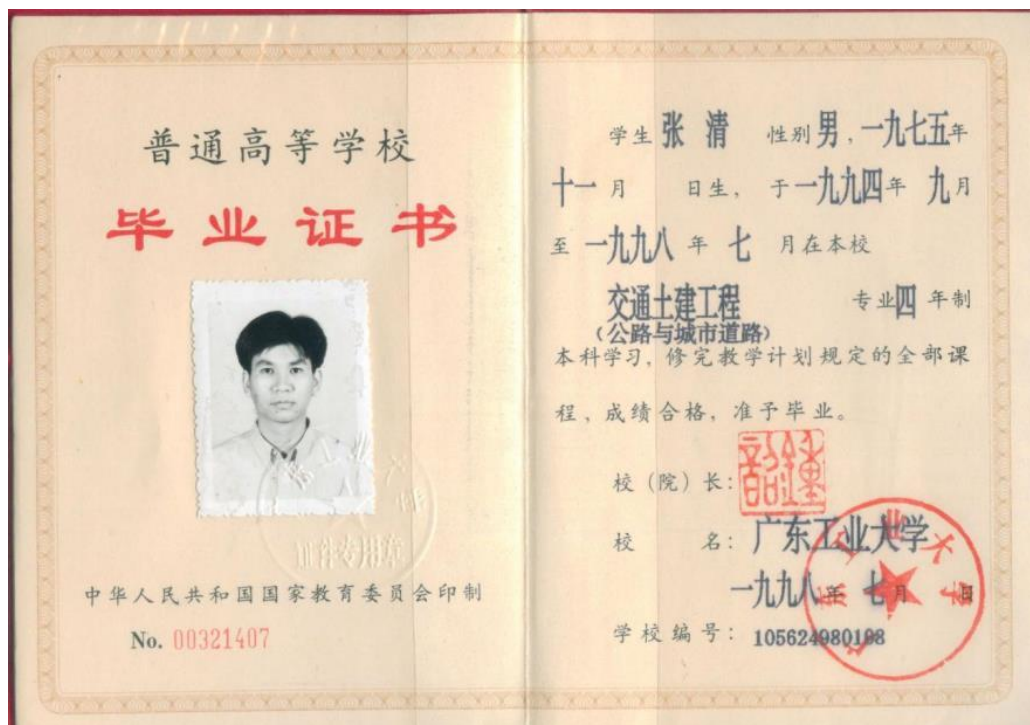 普通高等学校
毕业证书
中华人民共和国国家教育委员会印制
No. 00321407
学生 张清 性别 男，一九七五年
十一月 日生，于一九九四年 九月
至 一九九八 年 七 月在本校
交通土建工程 专业四年制
（公路与城市道路）
本科学习，修完教学计划规定的全部课
程，成绩合格，准予毕业。
校（院）长：
校 名：广东工业大学
一九九八年 七月 日
学校编号：105624980108
证件专用章